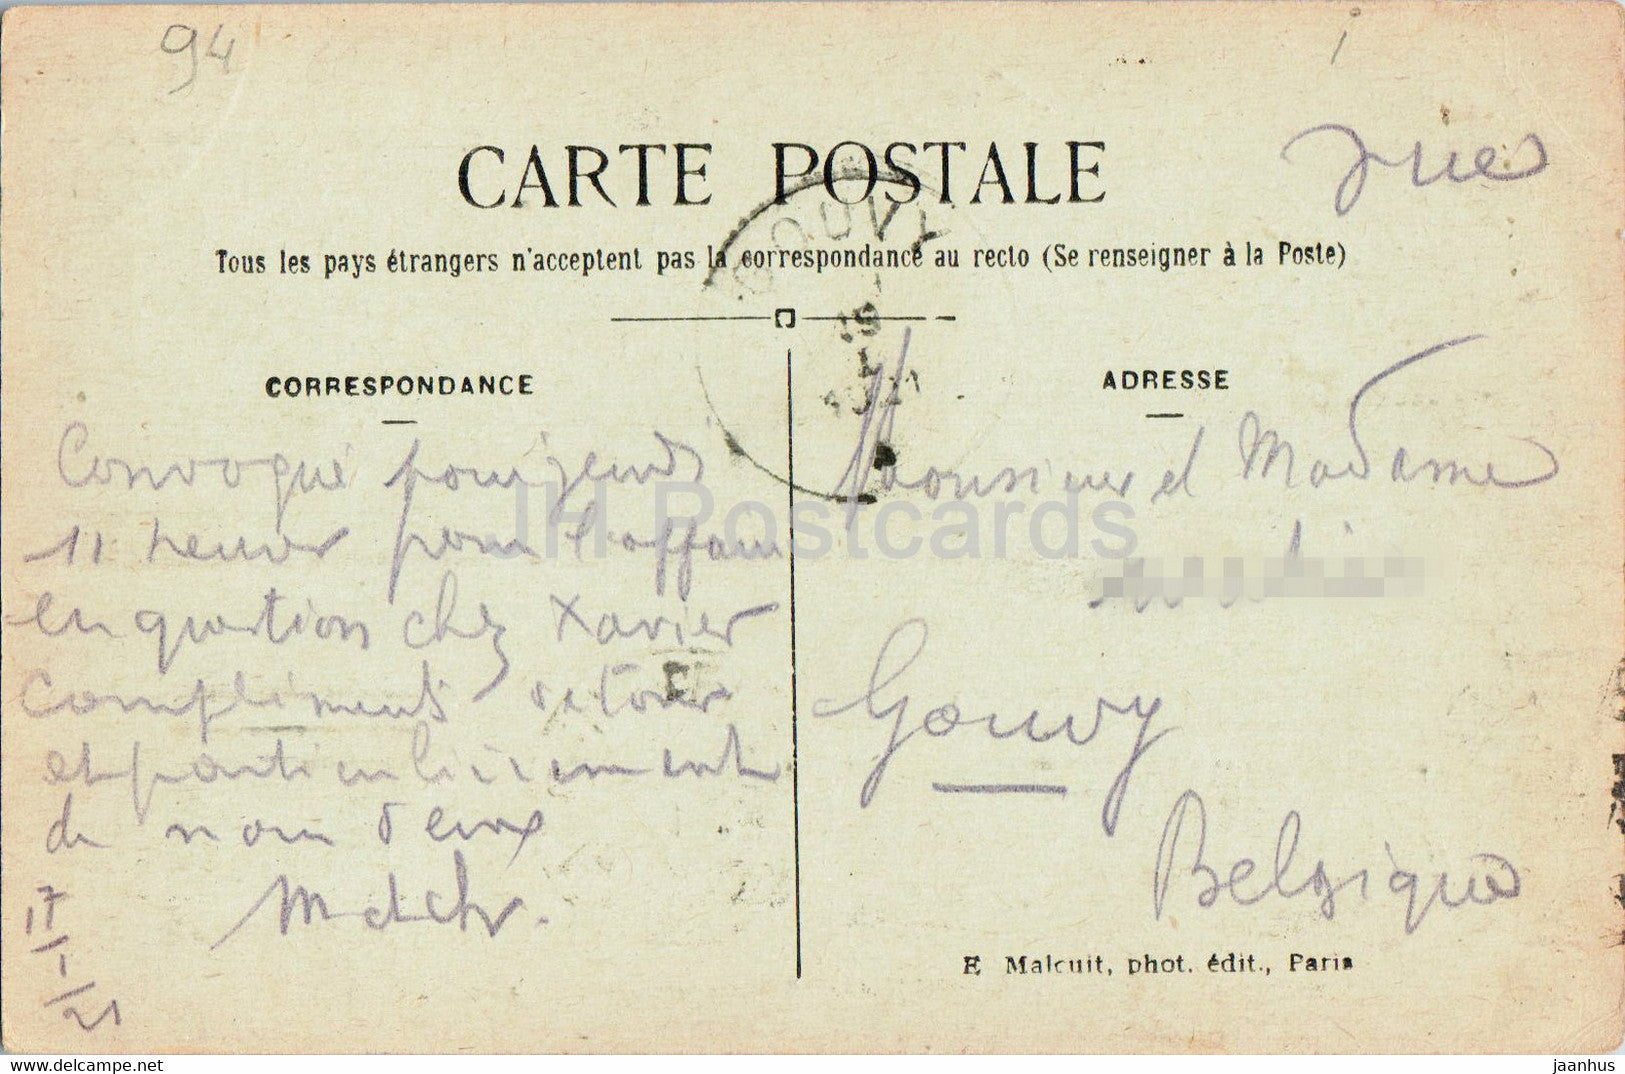 94
CARTE POSTALE
Tous les pays étrangers n'acceptent pas la correspondance au recto (Se renseigner à la Poste)
GOUVY
CORRESPONDANCE
ADRESSE
Convoqué pour jeudi
11 heures pour l'affaire
en question chez Xavier
Compliments retour
et particulièrement
de nous deux
17
1
21
Monsieur et Madame
Gouvy
Belgique
E Malcuit, phot. édit., Paris
JH Postcards
www.delcampe.net
jaanhus